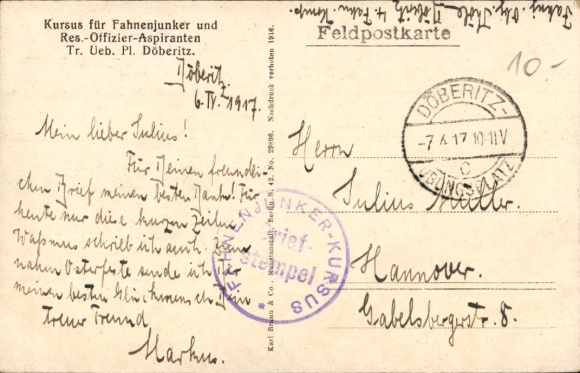 Kursus für Fahnenjunker und
Res.-Offizier-Aspiranten
Tr. Ueb. Pl. Döberitz.
Döberitz
6. IV. 1917.
Mein lieber Julius!
Für Deinen freundli-
chen Brief meinen besten Dank! Für
heute nur diese kurzen Zeilen
schrieb ich auch. Zum
nahen Osterfeste sende ich Dir
meinen besten Glückwunsch. Dein
treuer Freund
Markus.
Karl Braun & Co., Kunstanstalt, Berlin S. 42. No. 29896. Nachdruck verboten 1916.
FAHNENJUNKER-KURSUS
Brief-
stempel
Fahnj.
Döberitz 4. Fahnj. Komp.
Feldpostkarte
10.-
DÖBERITZ-
-7.4.17.10-11V
c
ÜBUNGSPLATZ
Herrn
Julius Müller.
Hannover.
Gabelsbergerstr. 8.